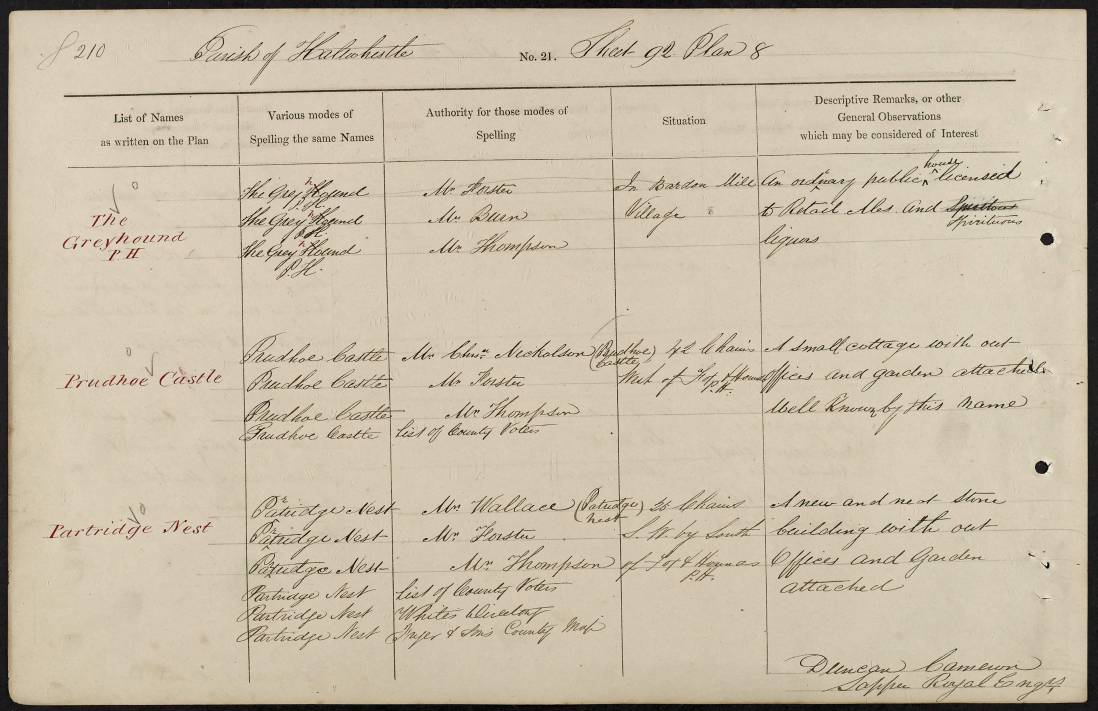 210
Parish of Haltwhistle No. 21. Sheet 92 Plan 8
List of Names
as written on the Plan
Various modes of
Spelling the same Names
Authority for those modes of
Spelling
Situation
Descriptive Remarks, or other
General Observations
which may be considered of Interest
The
Greyhound
P H
The Grey Hound
P.H.
The Grey Hound
P.H.
The Grey Hound
P.H.
Mr. Forster
Mr. Burn
Mr. Thompson
In Bardon Mill
Village
An ordinary public house licensed
to Retail Ales and Spirituous
liquors
Prudhoe Castle
Prudhoe Castle
Prudhoe Castle
Prudhoe Castle
Prudhoe Castle
Mr. Chrisr. Nickolson (Prudhoe Castle)
Mr. Forster
Mr. Thompson
List of County Voters
42 Chains
West of Fox & Hounds
P.H.
A small cottage with out
offices and garden attached
Well Known by this name
Partridge Nest
Partridge Nest
Partridge Nest
Partridge Nest
Partridge Nest
Partridge Nest
Partridge Nest
Mr. Wallace (Patridge Nest)
Mr. Forster
Mr. Thompson
List of County Voters
Whites Directory
Fryer & Sons County Map
25 Chains
S. W. by South
of Fox & Hounds
P.H.
A new and neat stone
building with out
Offices and Garden
attached
Duncan Cameron
Sapper Royal Engrs